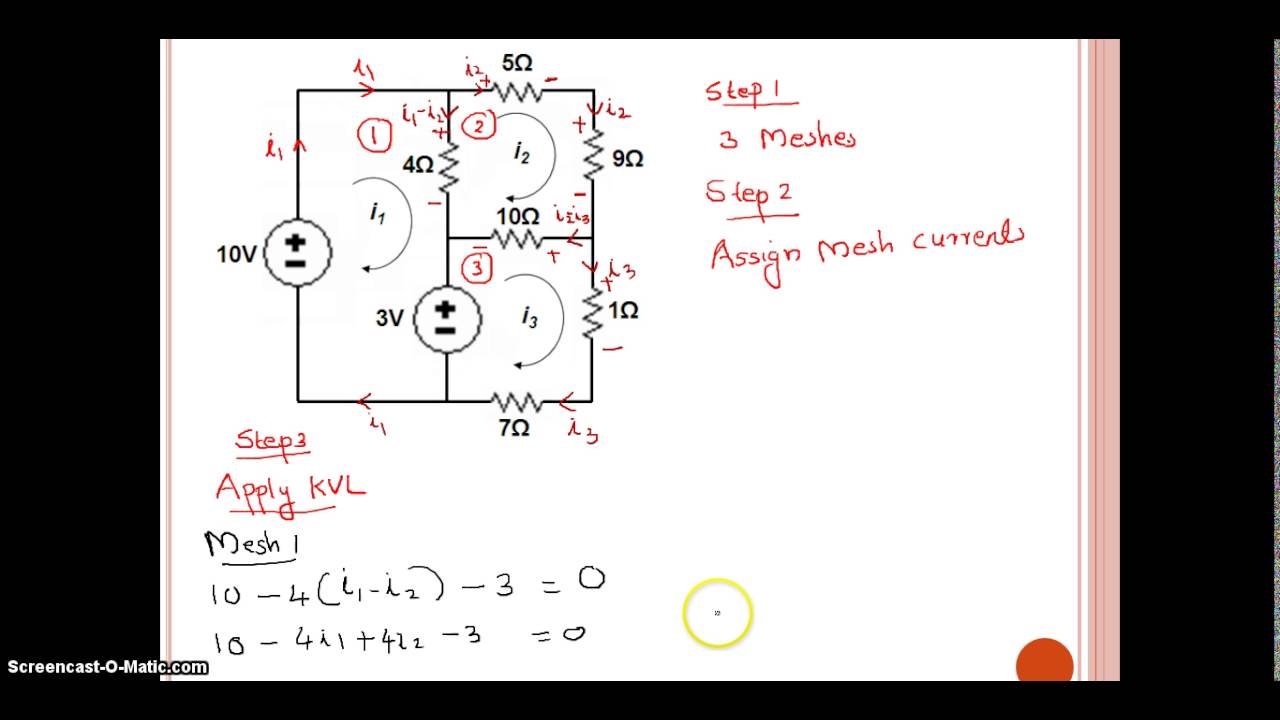 i1
i2
5Ω
i1-i2
+
-
i2
1
2
+
+
i1
4Ω
i2
9Ω
-
-
i1
10Ω
i2-i3
10V
+
-
-
3
+
i3
+
3V
+
-
i3
1Ω
-
i1
7Ω
i3
Step 1
3 Meshes
Step 2
Assign Mesh currents
Step3
Apply KVL
Mesh 1
10 - 4(i1-i2) - 3 = 0
10 - 4i1 + 4i2 - 3 = 0
Screencast-O-Matic.com